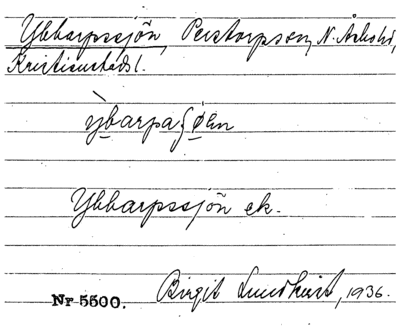 Ybbarpssjön, Perstorps sn, N. Åsbo hd,
Kristianstads l.
ỳbarpaʂøen
Ybbarpssjön ek.
Nr 5500. Birgit Lundkvist, 1936.